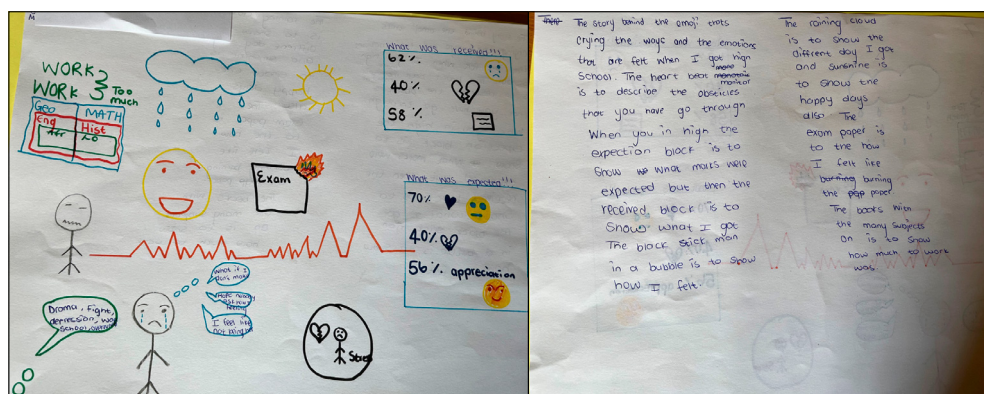 WORK
WORK
Too
much
Geo MATH
Eng Hist
Afr LO
Exam
What was received!!!
62%
40%
58%
What was expected!!!
70%
40%
56% appreciation
What if I
don't make
I feel like
not being
Drama, Fight,
depression,
Stress
The story behind the emoji thats
crying the ways and the emotions
that are felt when I got high
School. The heart beat monitor
is to describe the obsticles
that you have go through
When you in high the
expection block is to
show what marks were
expected but then the
received block is to
Show what I got
The black stick man
in a bubble is to show
how I felt.
The raining cloud
is to show the
diffrent day I got
and sunshine is
to show the
happy days
also The
exam paper is
to the how
I felt like
burning
the paper.
The books with
the many subjects
On is to show
how much to work
was.